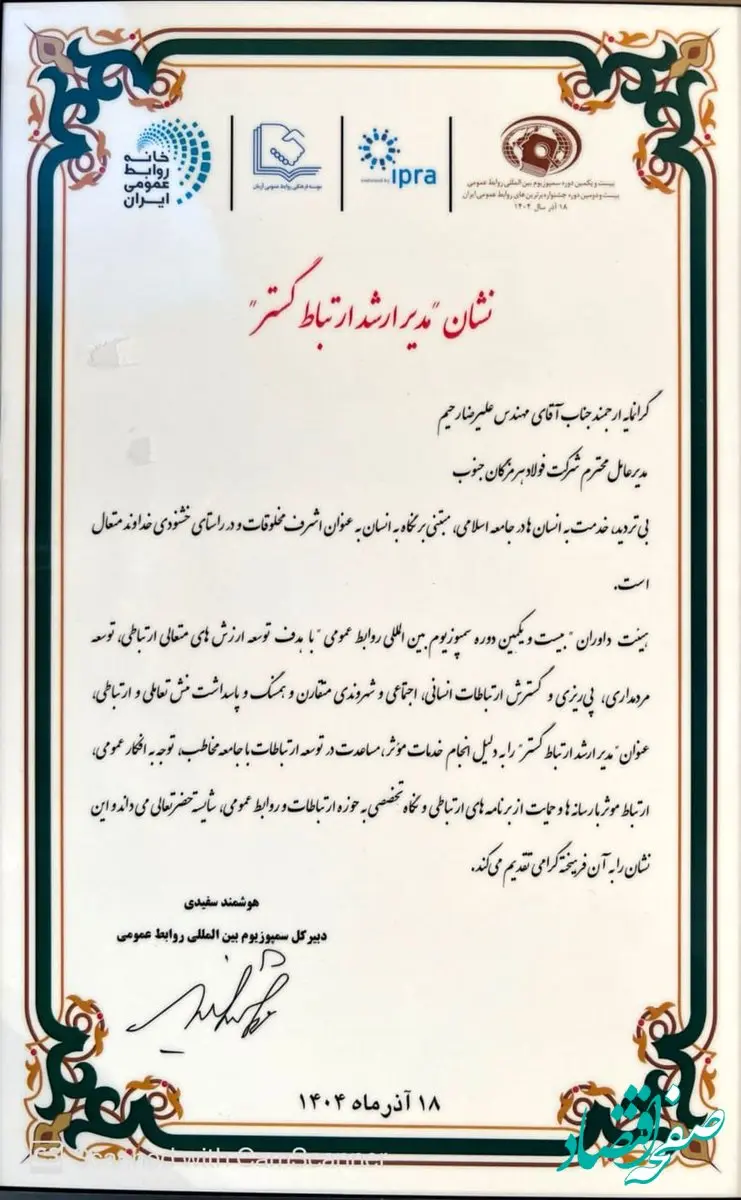 خانه
روابط
عمومی
ایران
موسسه فرهنگی روابط عمومی آرمان
endorsed by ipra
بیست و یکمین دوره سمپوزیوم بین المللی روابط عمومی
بیست و دومین دوره جشنواره برترین های روابط عمومی ایران
۱۸ آذر سال ۱۴۰۴
نشان "مدیر ارشد ارتباط گستر"
گرانمایه ارجمند جناب آقای مهندس علیرضا رحیم
مدیرعامل محترم شرکت فولاد هرمزگان جنوب
بی تردید، خدمت به انسان ها در جامعه اسلامی، مبتنی بر نگاه به انسان به عنوان اشرف مخلوقات و در راستای خشنودی خداوند متعال
است.
هیئت داوران "بیست و یکمین دوره سمپوزیوم بین المللی روابط عمومی" با هدف توسعه ارزش های متعالی ارتباطی، توسعه
مردمداری، پی ریزی و گسترش ارتباطات انسانی، اجتماعی و شهروندی متقارن و همسنگ و پاسداشت منش تعاملی و ارتباطی،
عنوان "مدیر ارشد ارتباط گستر" را به دلیل انجام خدمات مؤثر، مساعدت در توسعه ارتباطات با جامعه مخاطب، توجه به افکار عمومی،
ارتباط موثر با رسانه ها و حمایت از برنامه های ارتباطی و نگاه تخصصی به حوزه ارتباطات و روابط عمومی، شایسته حضرتعالی می داند و این
نشان را به آن فرهیخته گرامی تقدیم می کند.
هوشمند سفیدی
دبیر کل سمپوزیوم بین المللی روابط عمومی
۱۸ آذر ماه ۱۴۰۴
Scanned with CamScanner
صفحه اقتصاد